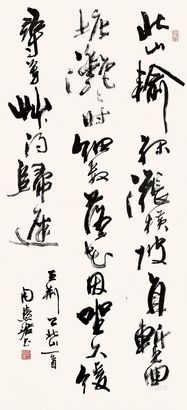 北山輸綠漲橫陂直塹回
塘灩灩时細數落花因坐久緩
尋芳草得歸遲
王荊公北山一首
周慧珺书